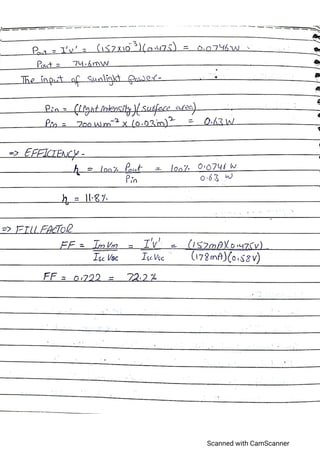 Pout = I'v' = (157X10⁻³)(0.475) = 0.0746w
Pout = 74.6mw
The input of sunlight power-
Pin = (Light Intensity)(surface area)
Pin = 700 Wm⁻² x (0.03m)² = 0.63 W
=> EFFICIENCY-
η = 100% Pout / Pin = 100% 0.0741 W / 0.63 W
η = 11.8%
=> FILL FACTOR
FF = ImVm / Isc Voc = I'V' / Isc Voc = (157mA)(0.475V) / (178mA)(0.58V)
FF = 0.722 = 72.2%
Scanned with CamScanner